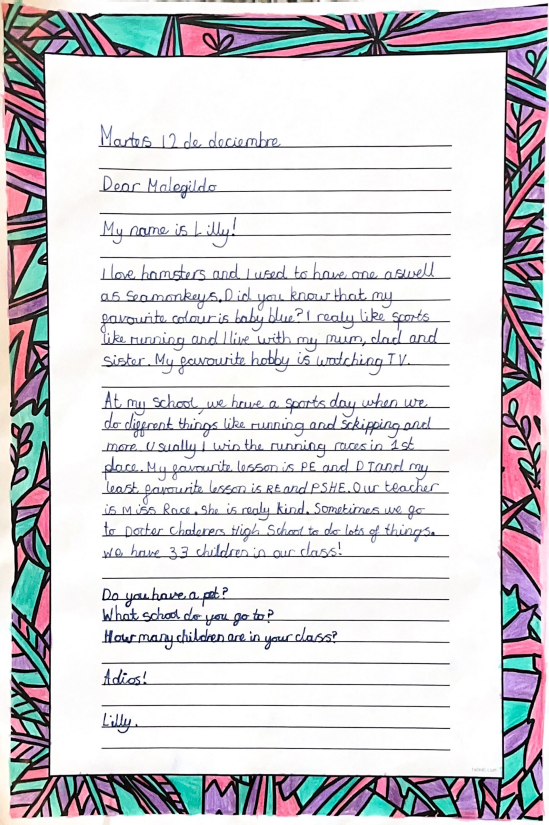 Martes 12 de deciembre
Dear Malegildo
My name is Lilly!
I love hamsters and I used to have one aswell
as seamonkeys. Did you know that my
favourite colour is baby blue? I realy like sports
like running and I live with my mum, dad and
sister. My favourite hobby is watching TV.
At my school, we have a sports day when we
do different things like running and sckipping and
more. Usually I win the running races in 1st
place. My favourite lesson is PE and DT and my
least favourite lesson is RE and PSHE. Our teacher
is Miss Race. She is realy kind. Sometimes we go
to Docter Chaloners High School to do lots of things.
We have 33 children in our class!
Do you have a pet?
What school do you go to?
How many children are in your class?
Adios!
Lilly.